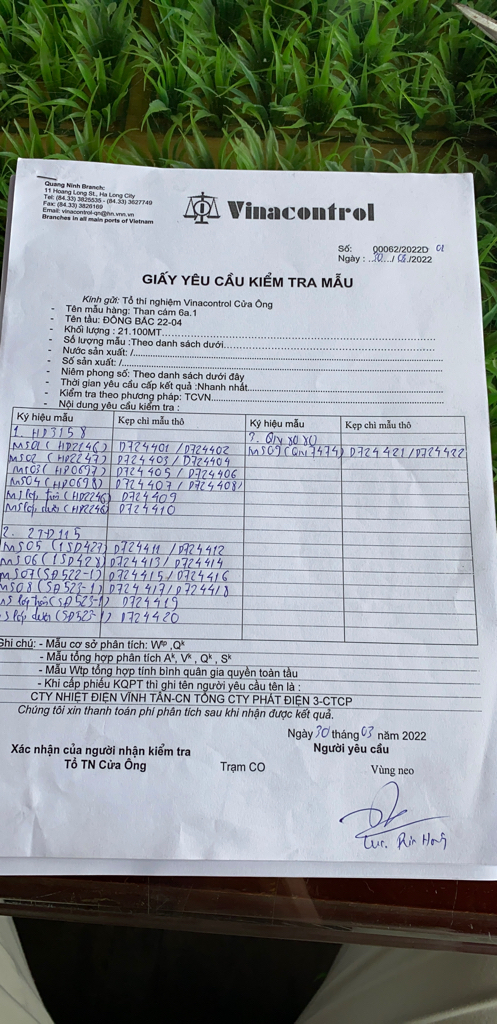 Quang Ninh Branch:
11 Hoang Long St., Ha Long City
Tel: (84.33) 3825535 - (84.33) 3627749
Fax: (84.33) 3826169
Email: vinacontrol-qn@hn.vnn.vn
Branches in all main ports of Vietnam
Vinacontrol
Số: 00062/2022D 01
Ngày : ..30.../ 03./2022
GIẤY YÊU CẦU KIỂM TRA MẪU
Kính gửi: Tổ thí nghiệm Vinacontrol Cửa Ông
- Tên mẫu hàng: Than cám 6a.1
- Tên tàu: ĐÔNG BẮC 22-04
- Khối lượng : 21.100MT
- Số lượng mẫu :Theo danh sách dưới
- Nước sản xuất: /
- Số sản xuất: /
- Niêm phong số: Theo danh sách dưới đây
- Thời gian yêu cầu cấp kết quả :Nhanh nhất
- Kiểm tra theo phương pháp: TCVN
- Nội dung yêu cầu kiểm tra :
Ký hiệu mẫu Kẹp chì mẫu thô Ký hiệu mẫu Kẹp chì mẫu thô
1. HD3158
MS01 (HD2146) D724401 / D724402 MS09 (QN7474) D724421 / D724422
MS02 (HD2247) D724403 / D724404
MS03 (HD0697) D724405 / D724406
MS04 (HD0698) D724407 / D724408
MS lớp trên (HD2246) D724409
MS lớp dưới (HD2246) D724410
MS05 (TSD427) D724411 / D724412
MS06 (TSD428) D724413 / D724414
MS07 (SD522-1) D724415 / D724416
MS08 (SD523-1) D724417 / D724418
MS lớp trên (SD523-1) D724419
MS lớp dưới (SD523-1) D724420
Ghi chú: - Mẫu cơ sở phân tích: Wᵗᵖ ,Qᵏ
- Mẫu tổng hợp phân tích Aᵏ, Vᵏ , Qᵏ , Sᵏ
- Mẫu Wtp tổng hợp tính bình quân gia quyền toàn tầu
- Khi cấp phiếu KQPT thì ghi tên người yêu cầu tên là :
CTY NHIỆT ĐIỆN VĨNH TÂN-CN TỔNG CTY PHÁT ĐIỆN 3-CTCP
Chúng tôi xin thanh toán phí phân tích sau khi nhận được kết quả.
Ngày 30 tháng 03 năm 2022
Xác nhận của người nhận kiểm tra Người yêu cầu
Tổ TN Cửa Ông Trạm CO Vùng neo